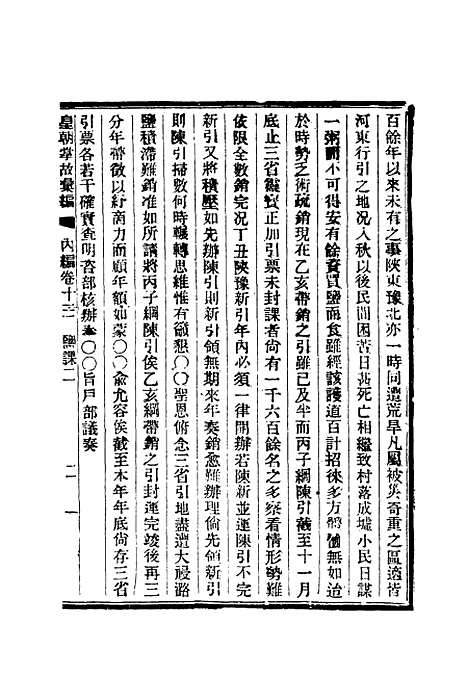 百餘年以來未有之事陝東豫北亦一時同遭荒旱凡屬被災奇重之區適皆
河東行引之地況入秋以後民間困苦日甚死亡相繼致村落成墟小民日謀
一粥而不可得安有餘資買鹽而食雖經該護道百計招徠多方體恤無如迫
於時勢乏術疏銷現在乙亥帶銷之引雖已及半而丙子綱陳引截至十一月
底止三省靈寳正加引票未封課者尚有一千六百餘名之多察看情形勢難
依限全數銷完況丁丑陝豫新引年內必須一律開辦若陳新並運陳引不完
新引又將積壓如先辦陳引則新引領無期來年奏銷愈難辦理倘先領新引
則陳引掃數何時輾轉思維惟有籲懇〇〇聖恩俯念三省引地盡遭大祲潞
鹽積滯難銷准如所請將丙子綱陳引俟乙亥綱帶銷之引封運完竣後再三
分年帶徵以紓商力而顧年額如蒙〇〇兪允容俟截至本年年底尙存三省
引票各若干確實查明咨部核辦奉〇〇旨戶部議奏
皇朝掌故彙編 內編卷十三 鹽課二 二一